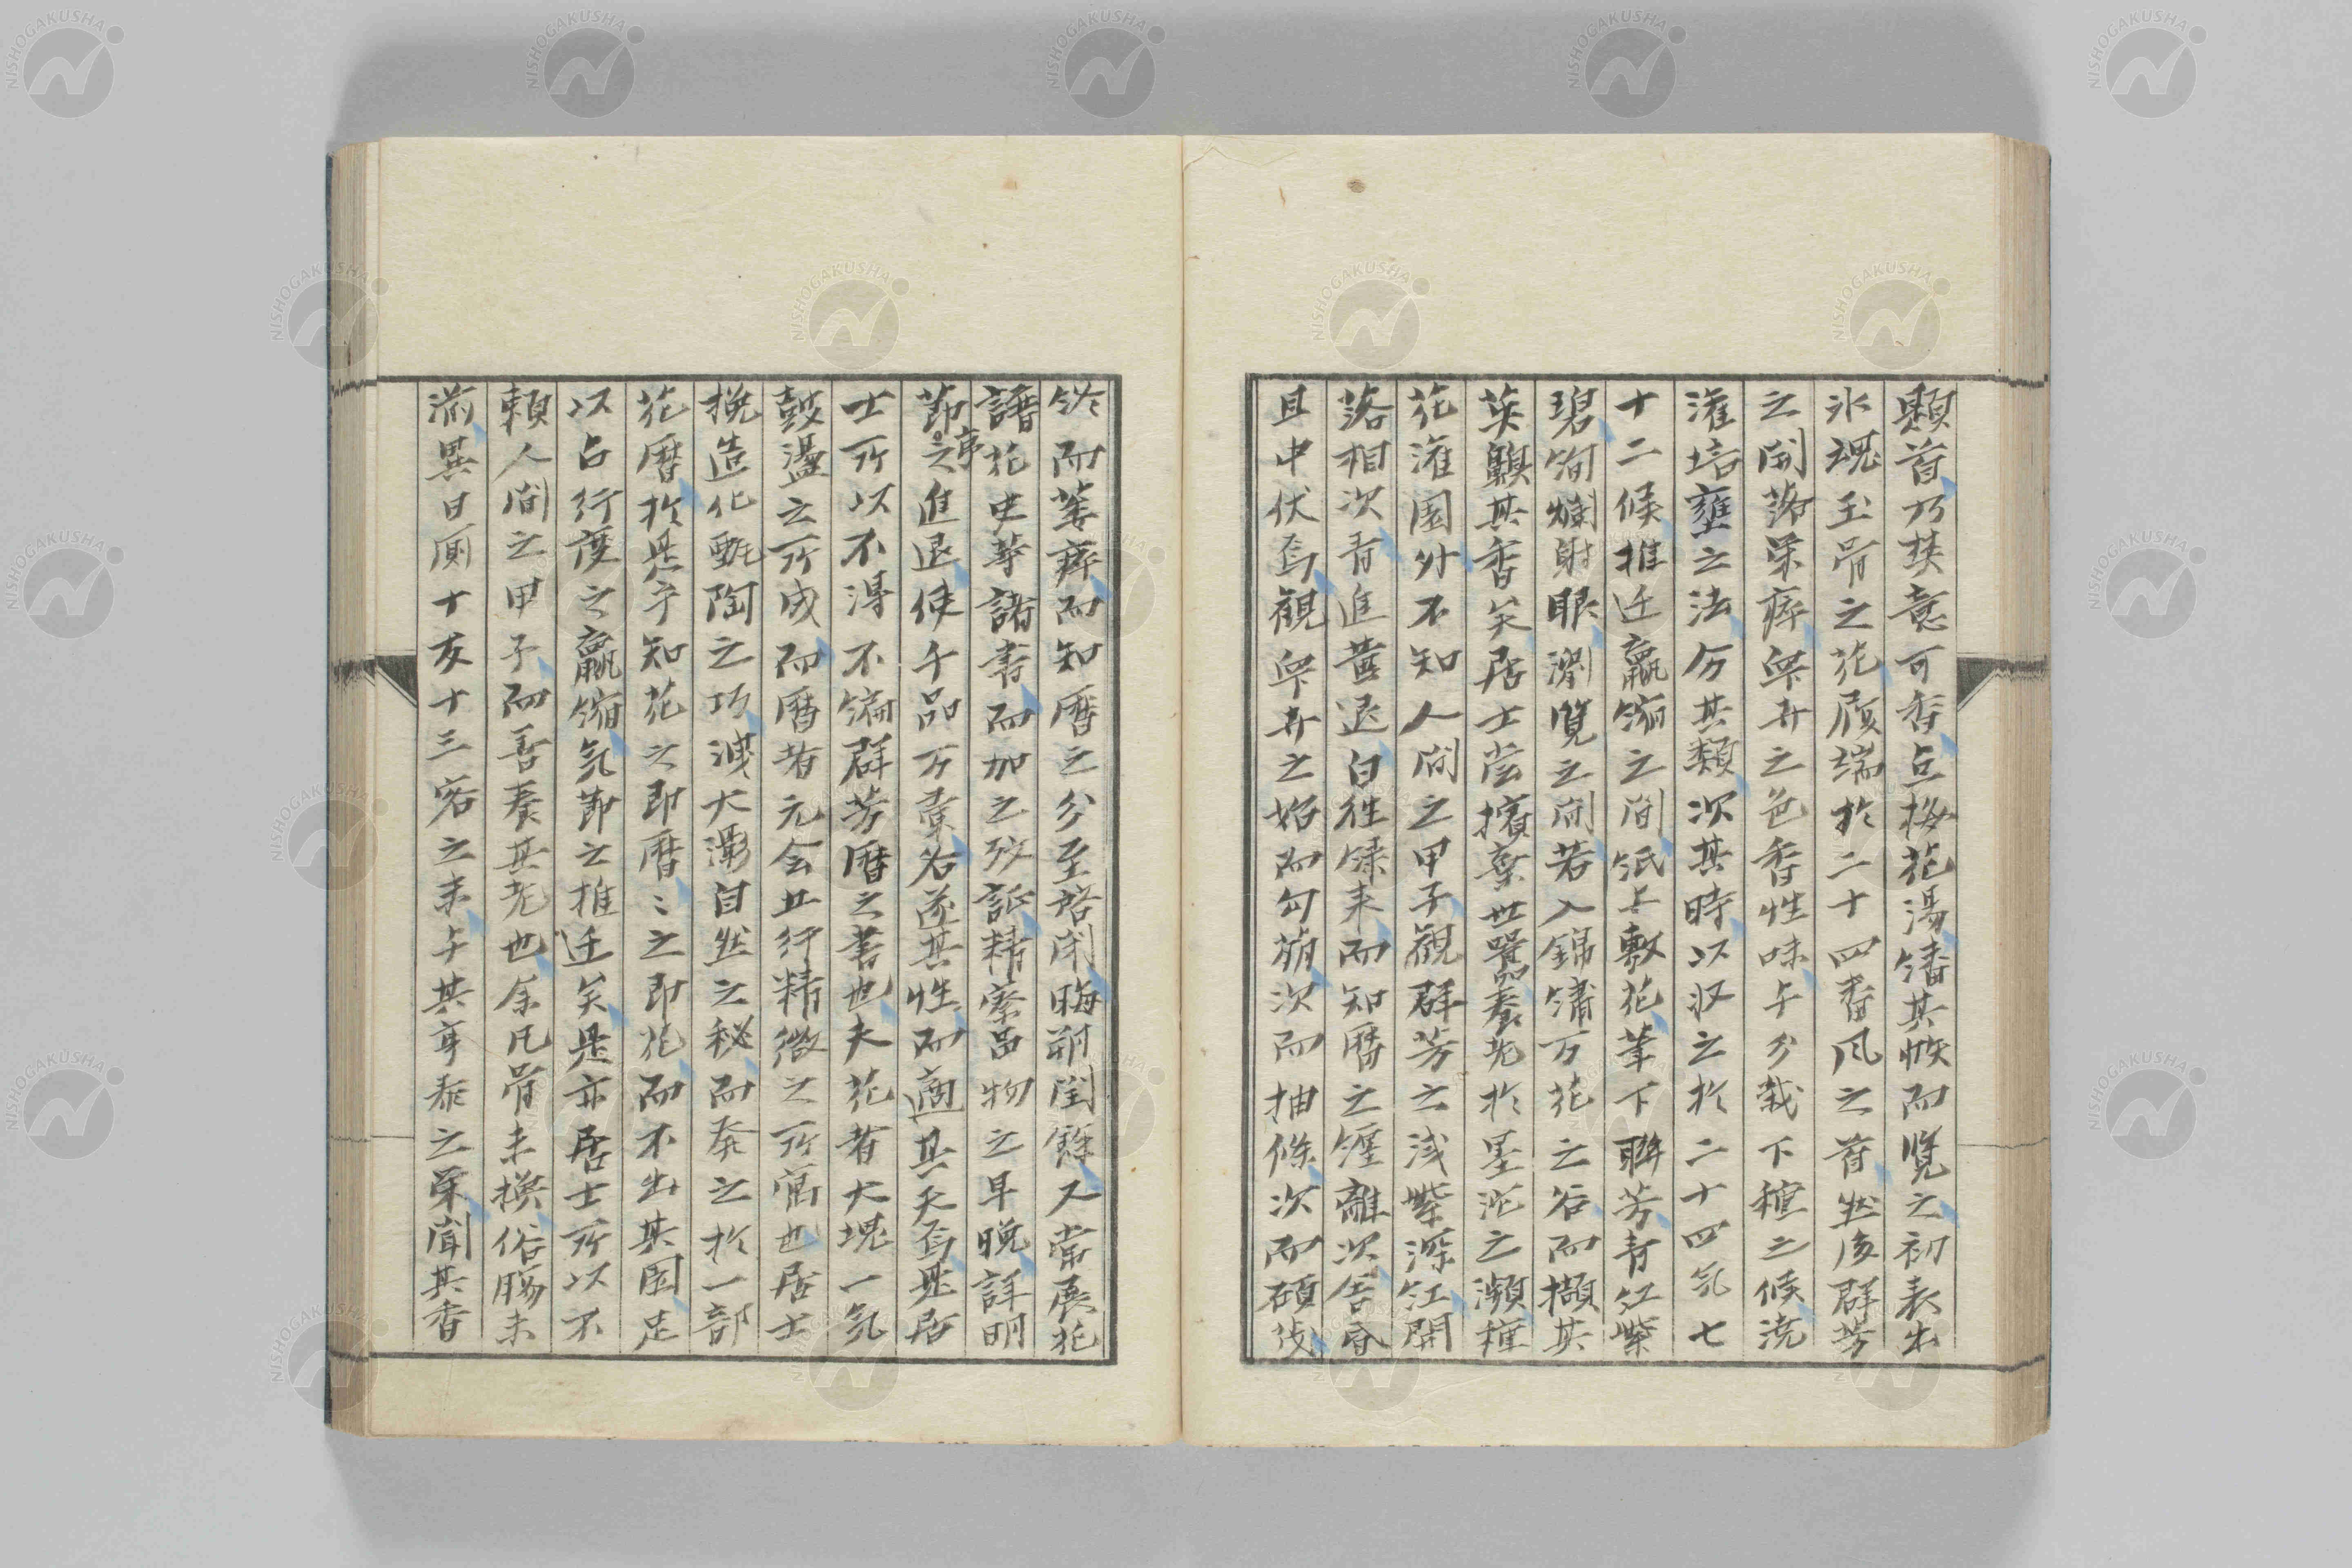 顆首乃挾意可香点梅花湯膰其帙而覧之初表出
氷魂玉骨之花顔端於二十四番風之首然後群芳
之開落栄瘁与卉之色香性味与分栽下種之候澆
灌培壅之法分其類次其時以収之於二十四気七
十二候推迁贏縮之間紙上敷花筆下聯芳青紅紫
碧絢爛射眼瀏覧之間若入錦繍万花之谷而擷其
英齅其香矣居士嘗擯棄世囂養老於墨沱之瀕種
花灌園外不知人間之甲子観群芳之浅紫深紅開
落相次青進黄退白徃緑来而知暦之躔離次舎昏
旦中伏焉観卉之始而勾萠次而抽條次而碩茂
終而萎瘁而知暦之分至啓閉晦朔閏餘又嘗展花
譜花史等諸書而加之攷証精察品物之早晩詳明
節序之進退使千品万彙各遂其性而適其天焉是居
士所以不得不編群芳暦之書也夫花者大塊一気
鼓盪之所成而暦者元会五行精微之所寓也居士
挽造化甄陶之巧洩大瀛自然之秘而奉之於一部
花暦於是乎知花之即暦々之即花而不出其園足
以占行度之贏縮気節之推迁矣是亦居士所以不
頼人間之甲子而善養其老也余凡骨未換俗腸未
湔異日廁十友十三客之末与其亨泰之栄聞其香